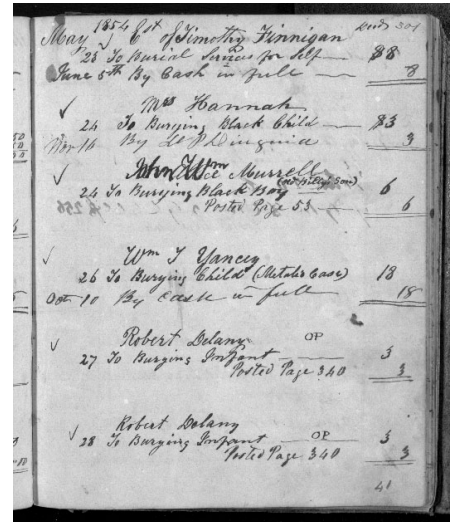 May 1854 Est of Timothy Finnigan
23 To Burial Services for Self $8
June 5th By Cash in full 8
Mrs Hannah
24 To Burying Black Child $3
Nov 14 By 3
Wm Murrell (old Billys Son)
24 To Burying Black Boy 6
Posted Page 53 6
Wm T Yancey
26 To Burying Child (Metalic Case) 18
Oct 10 By Cash in full 18
Robert Delany OP
27 To Burying Infant 3
Posted Page 340 3
Robert Delany
28 To Burying Infant OP 3
Posted Page 340 3
41